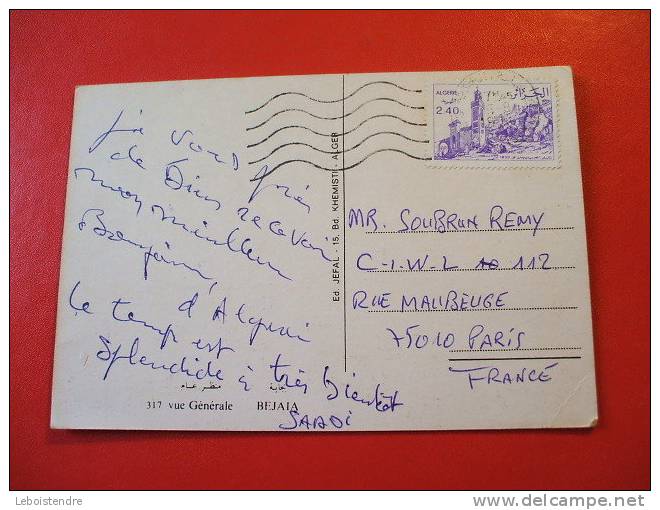 je vous prie
de bien recevoir
mon meilleur
Bonjour,
d'Algérie
le temps est
splendide à très bientôt
SAADI
منظر عام بجاية
317 vue Générale BEJAIA
Ed. JEFAL - 15, Bd. KHEMISTI - ALGER
ALGERIE
الجزائر
2.40
MR. SOUBRUN REMY
C-I-W-L 112
RUE MAUBEUGE
75010 PARIS
FRANCE
Leboistendre
delcampe.net